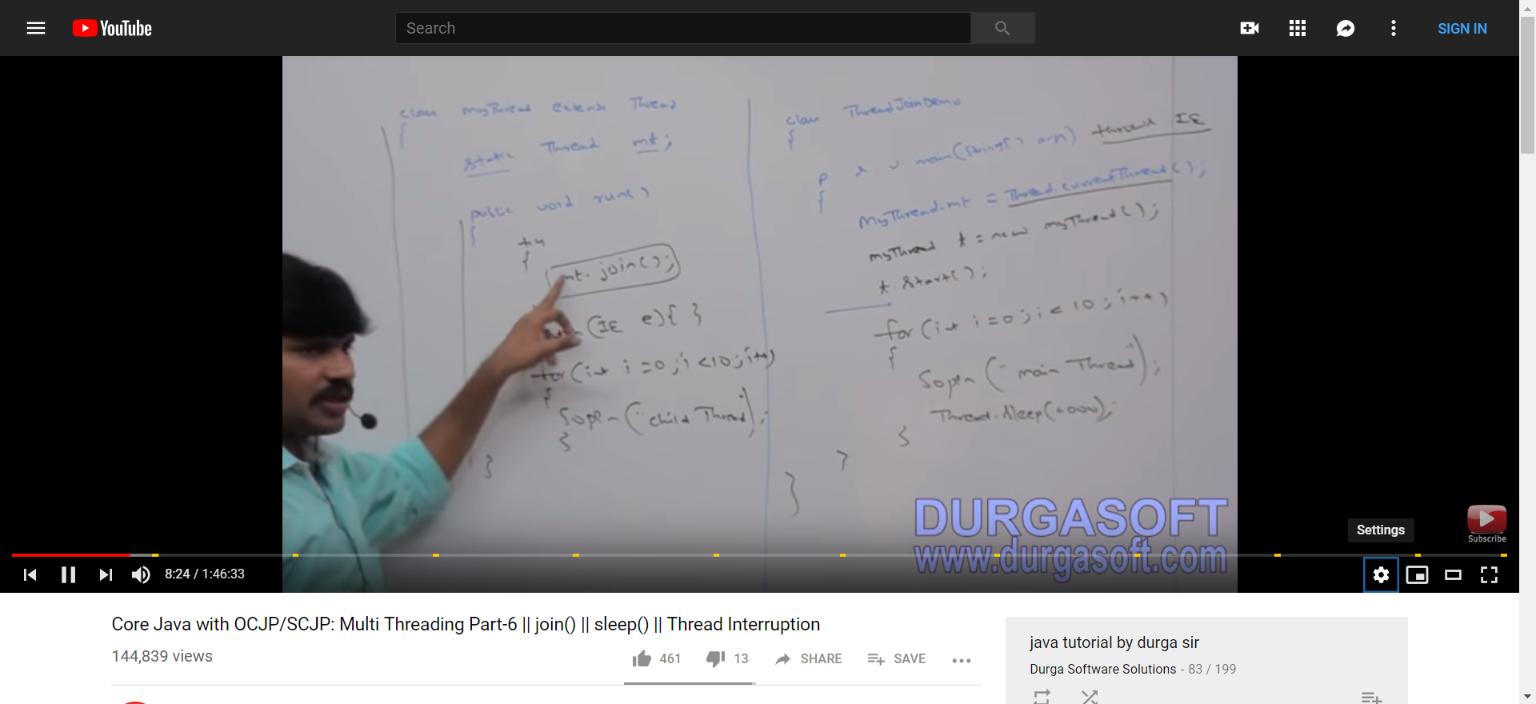 YouTube
Search
SIGN IN
class myThread extends Thread
{
static Thread mt;
public void run()
{
try
{
mt.join();
(IE e){ }
for(int i=0;i<10;i++)
{
Sopln("child Thread");
}
}
class ThreadJoinDemo
{
p s v main(String[] args) throws IE
{
MyThread.mt = Thread.currentThread();
myThread t = new myThread();
t.start();
for(int i=0;i<10;i++)
{
Sopln("main Thread");
Thread.sleep(2000);
}
}
}
DURGASOFT
www.durgasoft.com
Subscribe
Settings
8:24 / 1:46:33
Core Java with OCJP/SCJP: Multi Threading Part-6 || join() || sleep() || Thread Interruption
144,839 views
461
13
SHARE
SAVE
java tutorial by durga sir
Durga Software Solutions - 83 / 199